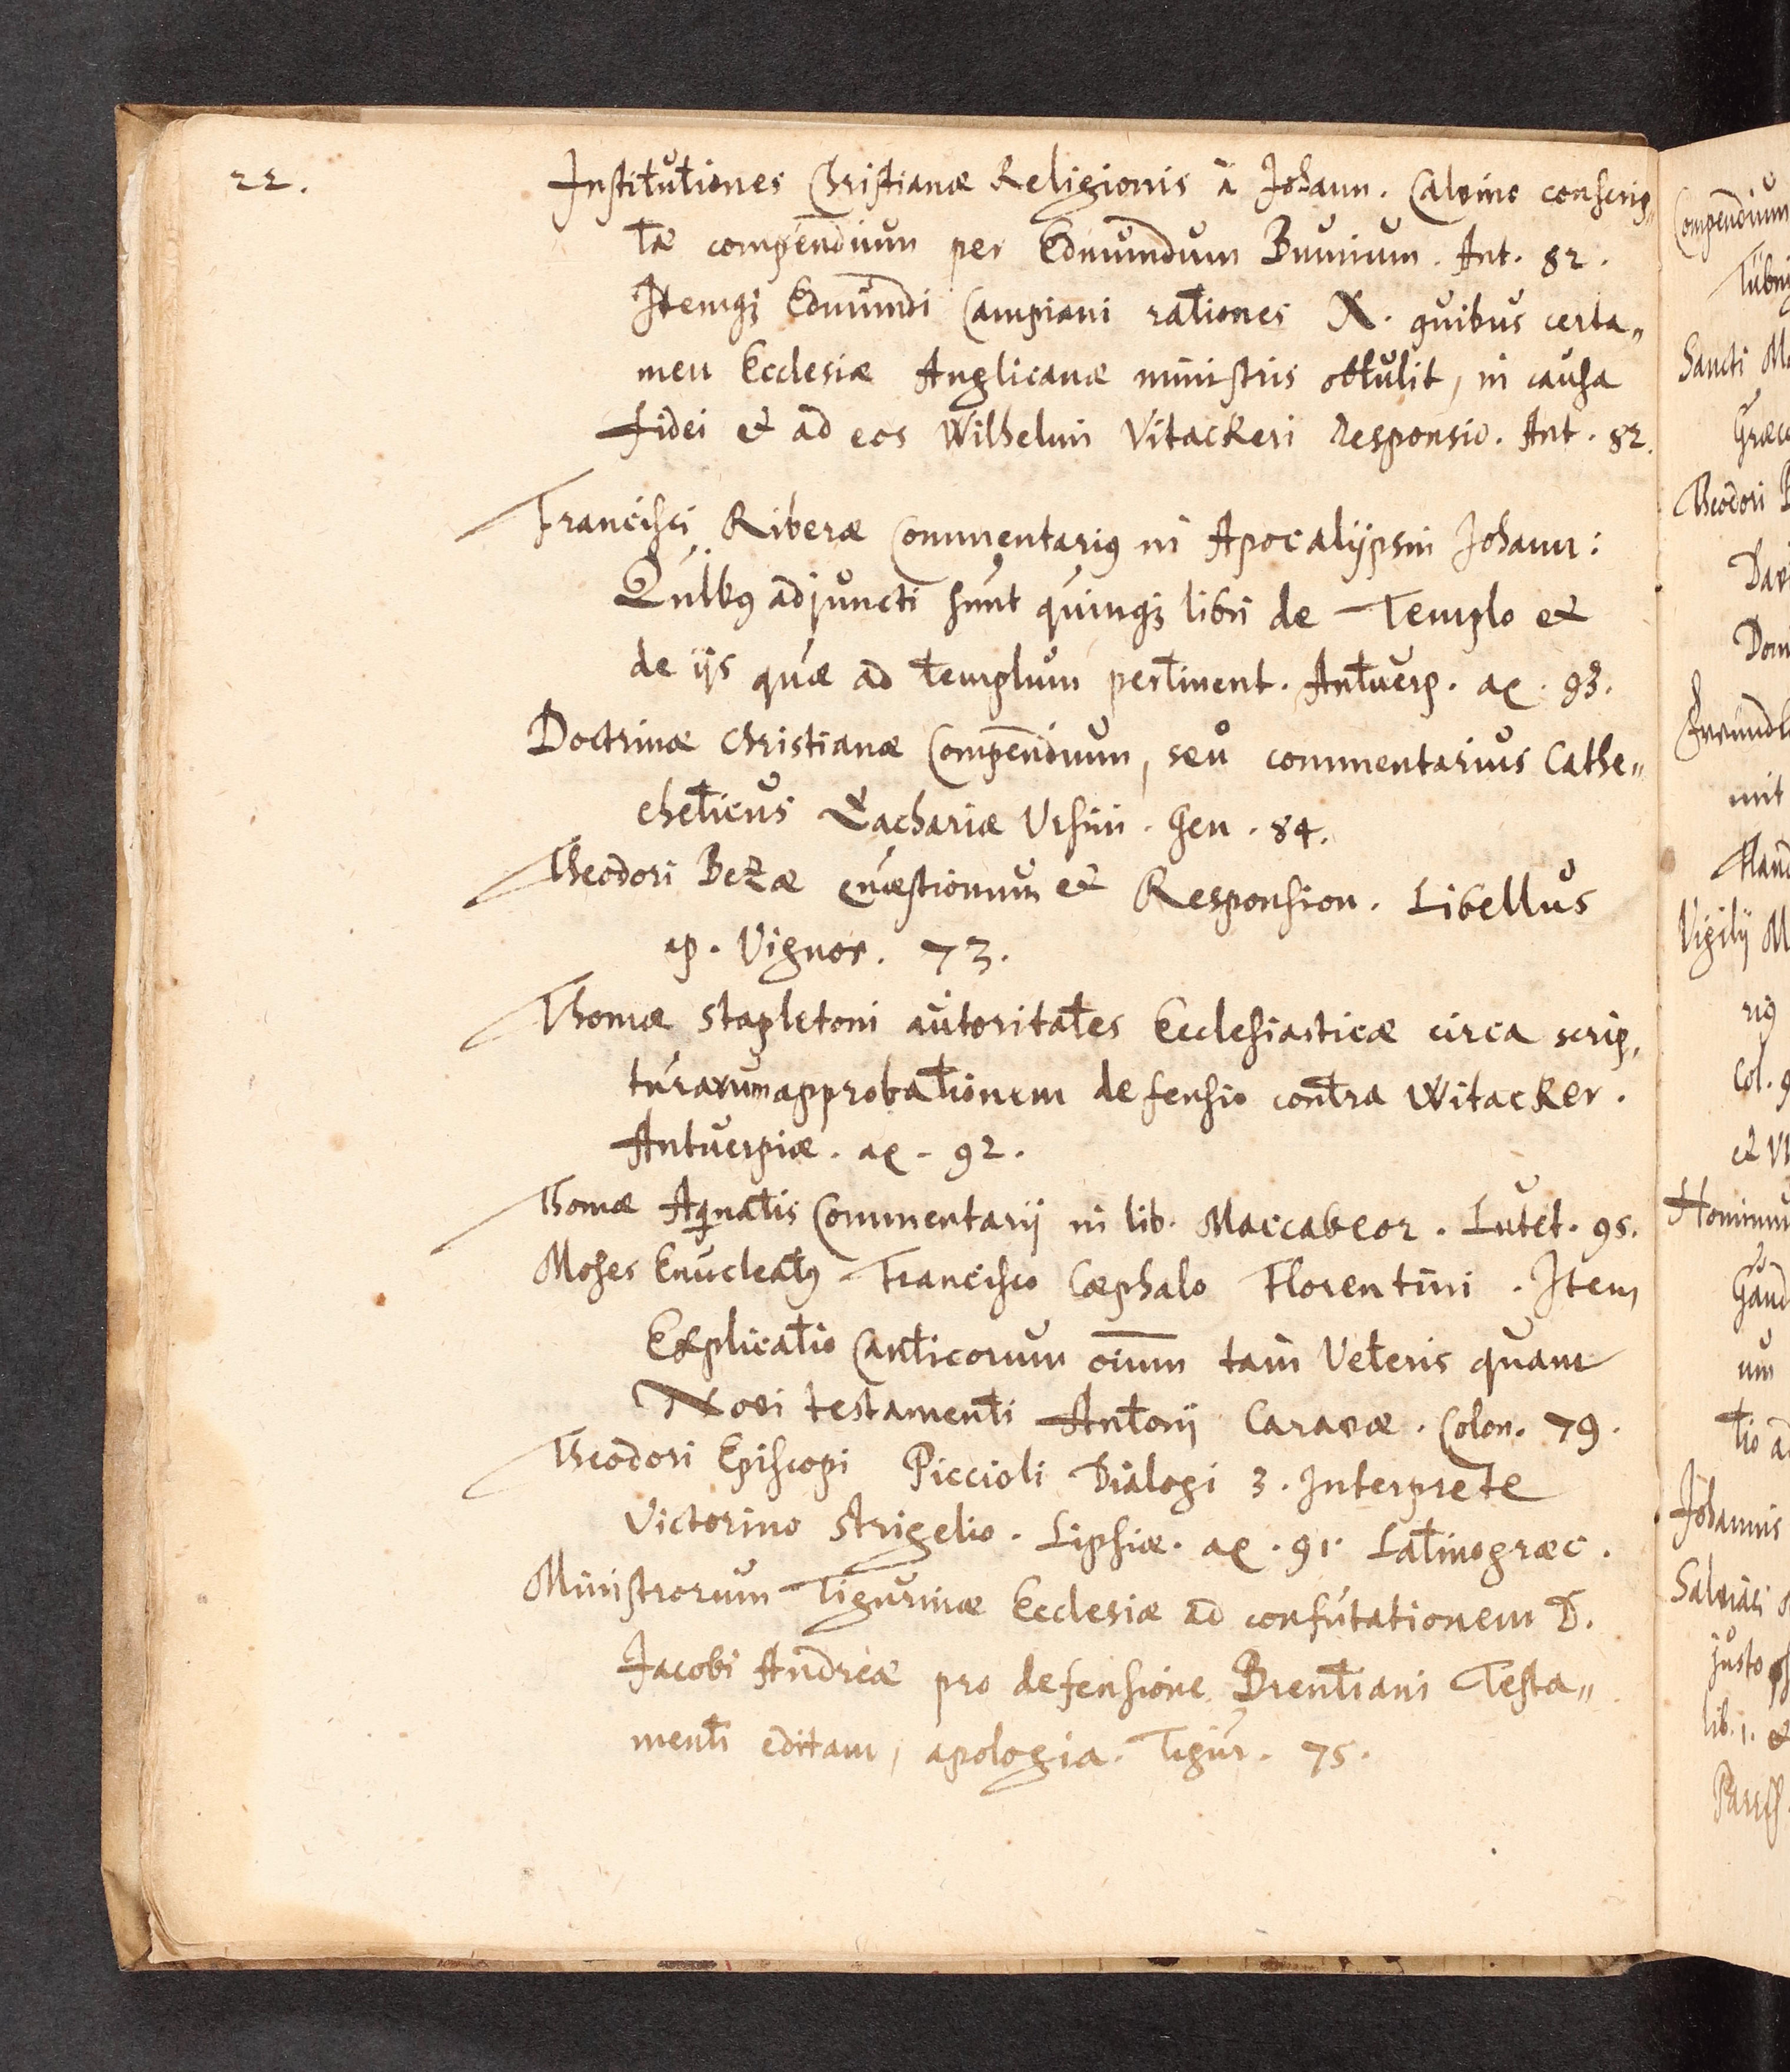 22.
Institutiones Christianæ Religionis à Johann. Calvino conscrip„
tæ compendium per Edmundum Bunium. Ant. 82.
Itemq; Edmundi Campiani rationes X. quibus certa„
men Ecclesiæ Anglicanæ ministris obtulit, in causa
fidei et ad eos Wilhelmi Vitackeri responsio. Ant. 82.
Francisci Riberæ Commentarius in Apocalijpsin Johann:
Quibus adjuncti sunt quinq; libri de Templo et
de ijs quæ ad templum pertinent. Antuerp. aę. 93.
Doctrinæ Christianæ Compendium, seu commentarius Cathe„
cheticus Zachariæ Vrsini. Gen. 84.
Theodori Bezæ quæstionum et Responsion. Libellus
ap. Vignor. 73.
Thomæ Stapletoni autoritates Ecclesiasticæ circa scrip„
turarum approbationem defensio contra Witacker.
Antuerpiæ. aę. 92.
Thomæ Aqinatis Commentarij in lib. Maccabeor. Lutet. 95.
Moses Enucleatus Francisco Cæphalo Florentini. Item
Explicatio Canticorum oium tam Veteris quam
Novi testamenti Antonij Caravæ. Colon. 79.
Theodori Episcopi Piccioli Dialogi 3. Interprete
Victorino Strigelio. Lipsiæ. aę. 91. Latinogræc.
Ministrorum Tigurinæ Ecclesiæ ad confutationem D.
Jacobi Andreæ pro defensione Brentiani Testa„
menti editam, apologia. Tigur. 75.
Compendium
Tübin
Sancti Ma
Græce
Theodori B
Davi
Dom
Freundl
mit
Hand
Vigilij M
rius
Col. 9
et Vi
Hominu
Gaud
um
tio ad
Johannis
Salviani
justo
lib. 1. et